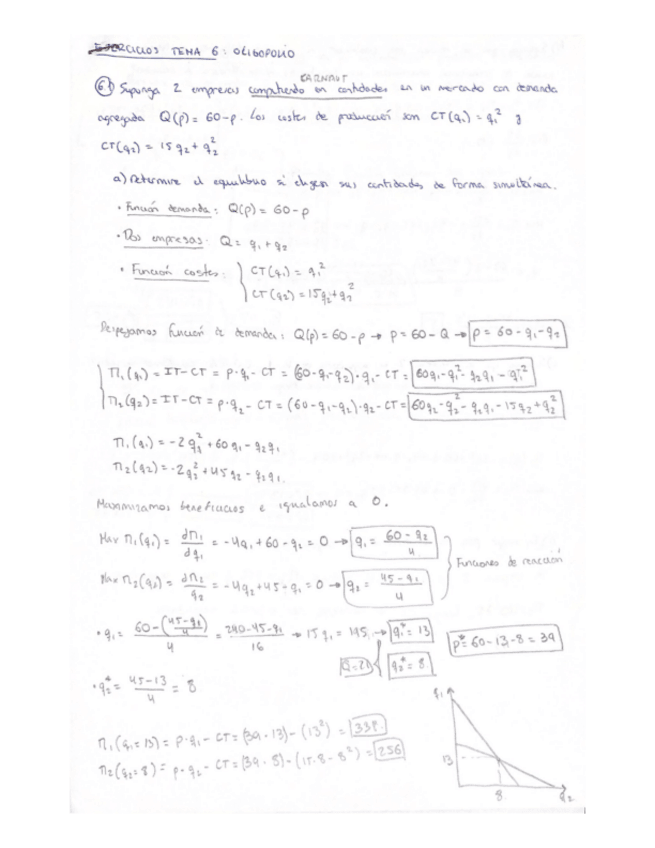 EJERCICIOS TEMA 6: OLIGOPOLIO
CARNAUT
6.1 Suponga 2 empresas compitiendo en cantidades en un mercado con demanda
agregada Q(p) = 60-p. Los costes de producción son CT(q₁) = q₁² y
CT(q₂) = 15q₂ + q₂²
a) Determine el equilibrio si eligen sus cantidades de forma simultánea.
• Función demanda: Q(p) = 60-p
• Dos empresas: Q = q₁ + q₂
• Función costes: { CT(q₁) = q₁²
CT(q₂) = 15q₂ + q₂²
Despejamos función de demanda: Q(p) = 60-p → p = 60-Q → p = 60-q₁-q₂
π₁(q₁) = IT-CT = p·q₁ - CT = (60-q₁-q₂)·q₁ - CT = 60q₁-q₁²-q₂q₁-q₁²
π₂(q₂) = IT-CT = p·q₂ - CT = (60-q₁-q₂)·q₂ - CT = 60q₂-q₂²-q₂q₁-15q₂+q₂²
π₁(q₁) = -2q₁² + 60q₁ - q₂q₁
π₂(q₂) = -2q₂² + 45q₂ - q₂q₁.
Maximizamos beneficios e igualamos a 0.
Max π₁(q₁) = dπ₁/dq₁ = -4q₁ + 60 - q₂ = 0 → q₁ = (60-q₂)/4
Funciones de reacción
Max π₂(q₂) = dπ₂/q₂ = -4q₂ + 45 - q₁ = 0 → q₂ = (45-q₁)/4
• q₁ = (60-((45-q₁)/4))/4 = (240-45-q₁)/16 → 15q₁ = 195 → q₁* = 13
p* = 60-13-8 = 39
Q=21 q₂* = 8
• q₂* = (45-13)/4 = 8
π₁(q₁=13) = p·q₁ - CT = (39·13) - (13²) = 338
π₂(q₂=8) = p·q₂ - CT = (39·8) - (15·8-8²) = 256
q₁
13
8
q₂